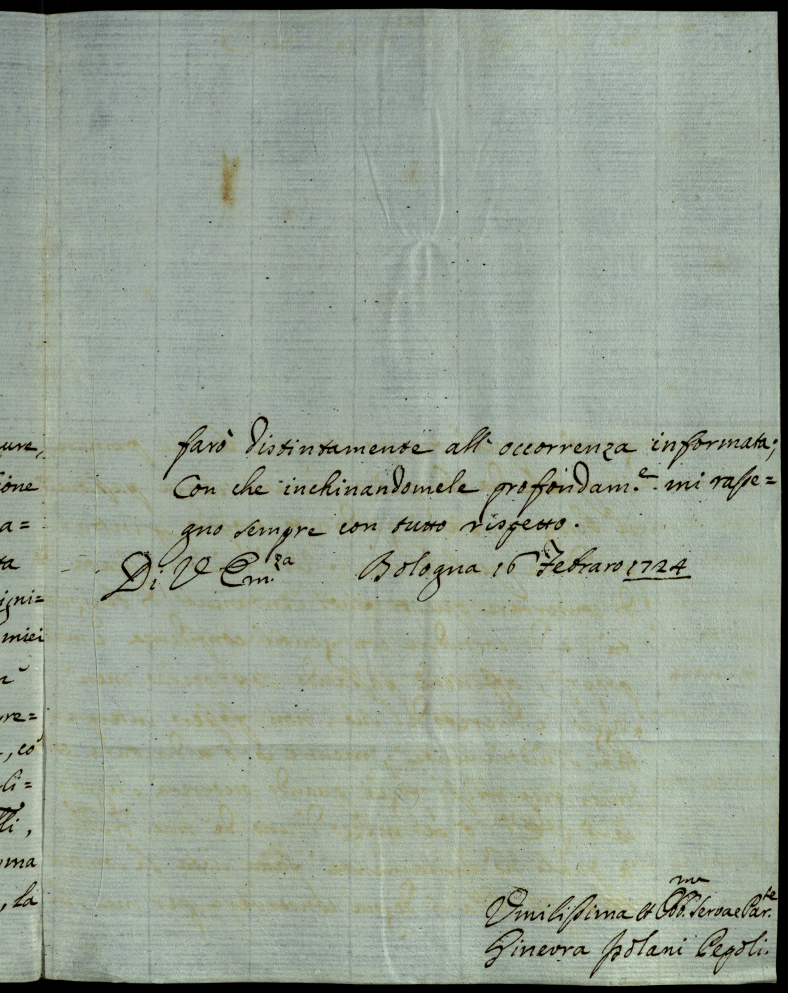 ure,
ione
a=
ta
igni=
miei
re=
, cõ
li=
li,
ma
, la
farò distintamente all' occorrenza informata;
Con che inchinandomele profondam.e mi rasse=
gno sempre con tutto rispetto.
Di V Em.za Bologna 16 Febraro 1724
Vmilissima et Obb.ma Serva e Par.te
Ginevra Isolani Pepoli.